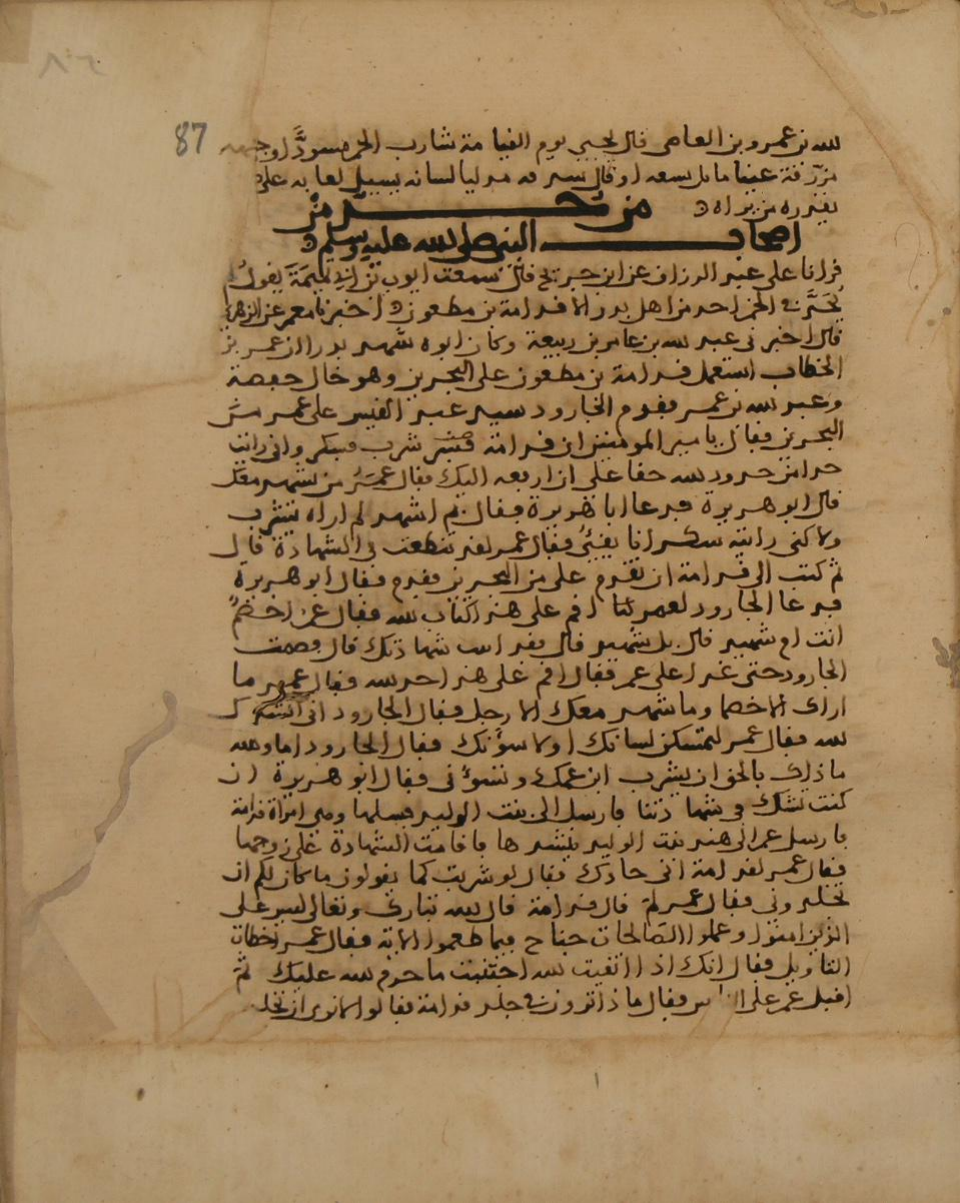 ٨٦
87
لله بن عمرو بن العاص قال يجيء يوم القيامة شارب الخمر مسودا وجهه
مزرقة عيناه مائل شقه او قال شدقه مدليا لسانه يسيل لعابه على
يقذره من يراه
من حد من
اصحاب النبي صلى الله عليه وسلم
قرانا على عبد الرزاق عن ابن جريج قال سمعت ايوب بن ابي تميمة يقول لم
يحد في الخمر احد من اهل بدر الا قدامة بن مظعون اخبرنا معمر عن الزهري
قال اخبرني عبد الله بن عامر بن ربيعة وكان ابوه شهد بدرا ان عمر بن
الخطاب استعمل قدامة بن مظعون على البحرين وهو خال حفصة
وعبد الله بن عمر فقدم الجارود سيد عبد القيس على عمر من
البحرين فقال يامير المومنين ان قدامة شرب فسكر واني رايت
حدا من حدود الله حقا على ان ارفعه اليك فقال عمر من يشهد معك
قال ابو هريرة فدعا ابا هريرة فقال بم اشهد لم اراه يشرب
ولاكني رايته سكرانا يقيء فقال عمر لقد تنطعت في الشهادة قال
ثم كتب الى قدامة ان يقدم علي من البحرين فقدم فقال ابو هريرة
فدعا الجارود لعمر اقم على هذا كتاب الله فقال عمر اخصم
انت ام شهيد قال بل شهيد قال فقد اديت شهادتك قال فصمت
الجارود حتى غدا على عمر فقال اقم على هذا حد الله فقال عمر ما
اراك الا خصما وما شهد معك الا رجل فقال الجارود اني انشدك
الله فقال عمر لتمسكن لسانك او لاسؤنك فقال الجارود اما والله
ما ذلك بالحق ان يشرب ابن عمك وتسؤني فقال ابو هريرة ان
كنت تشك في شهادتنا فارسل الى بنت الوليد فسلها وهي امراة قدامة
فارسل عمر الى هند بنت الوليد ينشدها فاقامت الشهادة على زوجها
فقال عمر لقدامة اني حادك فقال لو شربت كما يقولون ما كان لكم ان
تجلدوني فقال عمر لم قال قدامة قال الله تبارك وتعالى ليس على
الذين امنوا وعملوا الصالحات جناح فيما طعموا الاية فقال عمر اخطات
التاويل فقال انك اذا اتقيت الله اجتنبت ما حرم الله عليك ثم
اقبل عمر على الناس فقال ماذا ترون في جلد قدامة فقالوا لا نرى ان تجلده